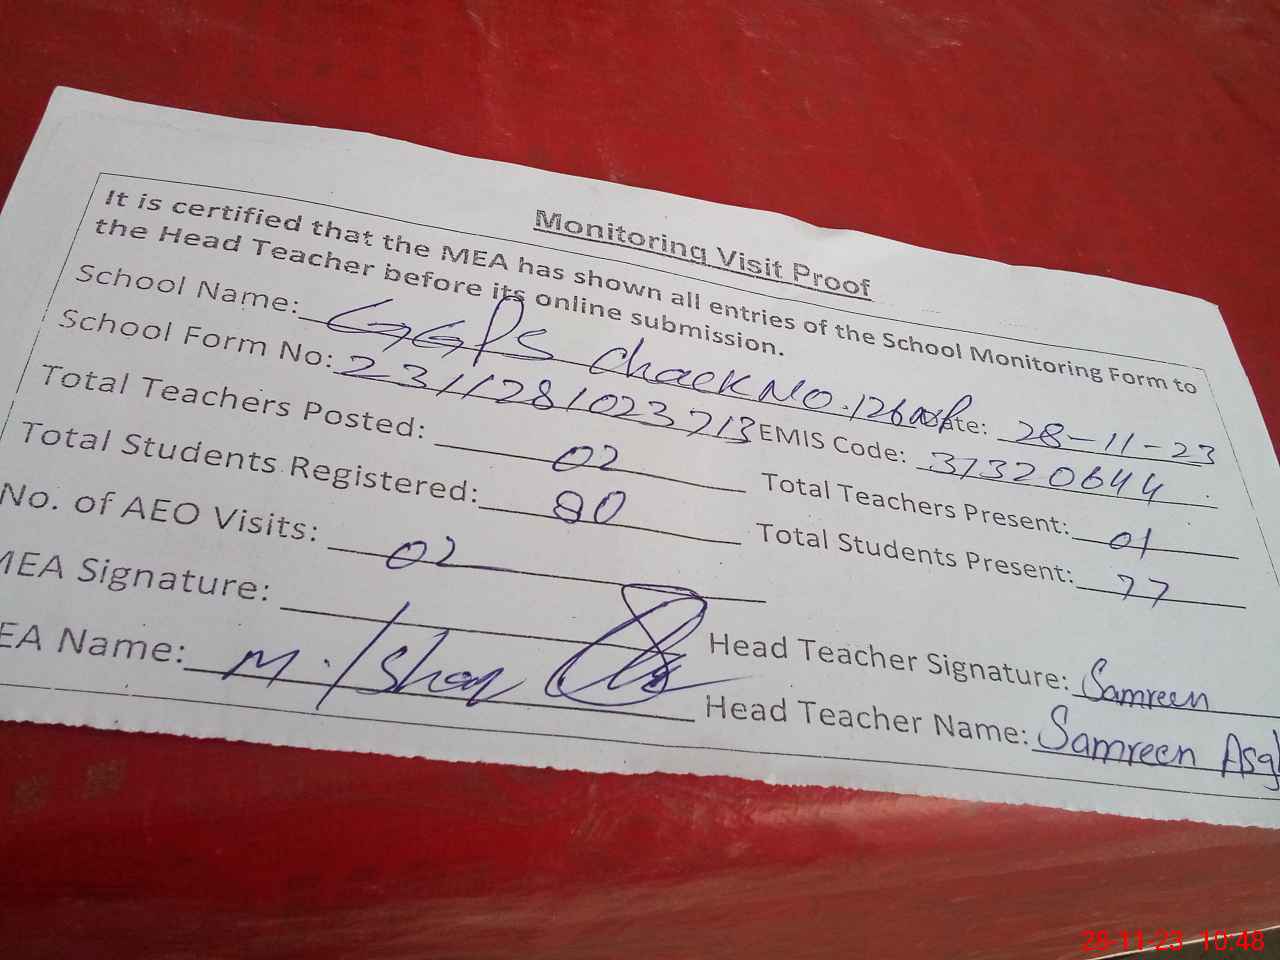 Monitoring Visit Proof
It is certified that the MEA has shown all entries of the School Monitoring Form to
the Head Teacher before its online submission.
School Name: GGPS Chack NO. 126 Date: 28-11-23
School Form No: 2311281023713 EMIS Code: 31320644
Total Teachers Posted: 02 Total Teachers Present: 01
Total Students Registered: 80 Total Students Present: 77
No. of AEO Visits: 02
MEA Signature: Head Teacher Signature: Samreen
EA Name: M. Head Teacher Name: Samreen Asg
28-11-23 10:48